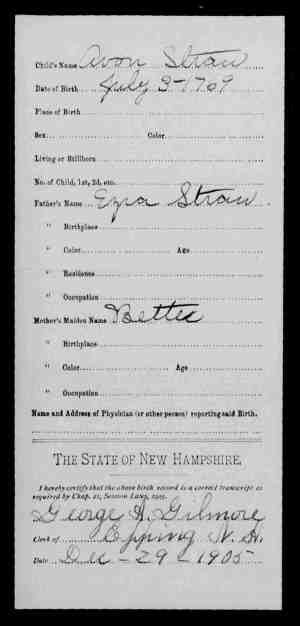 Child's Name Avon Straw
Date of Birth July 3-1769
Place of Birth
Sex Color
Living or Stillborn
No. of Child, 1st, 2d, etc.
Father's Name Ezra Straw
" Birthplace
" Color Age
" Residence
" Occupation
Mother's Maiden Name Bettee
" Birthplace
" Color Age
" Occupation
Name and Address of Physician (or other person) reporting said Birth.
THE STATE OF NEW HAMPSHIRE.
I hereby certify that the above birth record is a correct transcript as
required by Chap. 21, Session Laws, 1905.
George A. Gilmore
Clerk of Epping N. H.
Date Dec - 29 - 1905